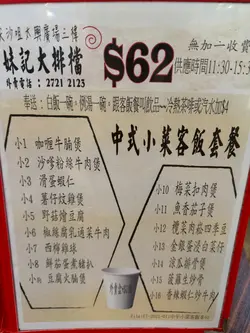 尖沙咀太興廣場三樓
妹記大排檔
外賣電話：2721 2125
$62
無加一收費
供應時間11:30-15:3
奉送：白飯一碗，例湯一碗，跟客飯餐叫飲品
中式小菜客飯套餐
小1 咖喱牛腩煲
小2 沙嗲粉絲牛肉煲
小3 滑蛋蝦仁
小4 薯仔炆雞煲
小5 野菇燴豆腐
小6 椒絲腐乳通菜牛肉
小7 西檸雞球
小8 鮮茄蛋煮豬扒
小9 豆腐火腩煲
小10 梅菜扣肉煲
小11 魚香茄子煲
小12 欖菜肉碎四季豆
小13 金銀蛋浸白菜仔
小14 涼瓜排骨煲
小15 菠蘿生炒骨
小16 香辣蝦仁炒牛肉